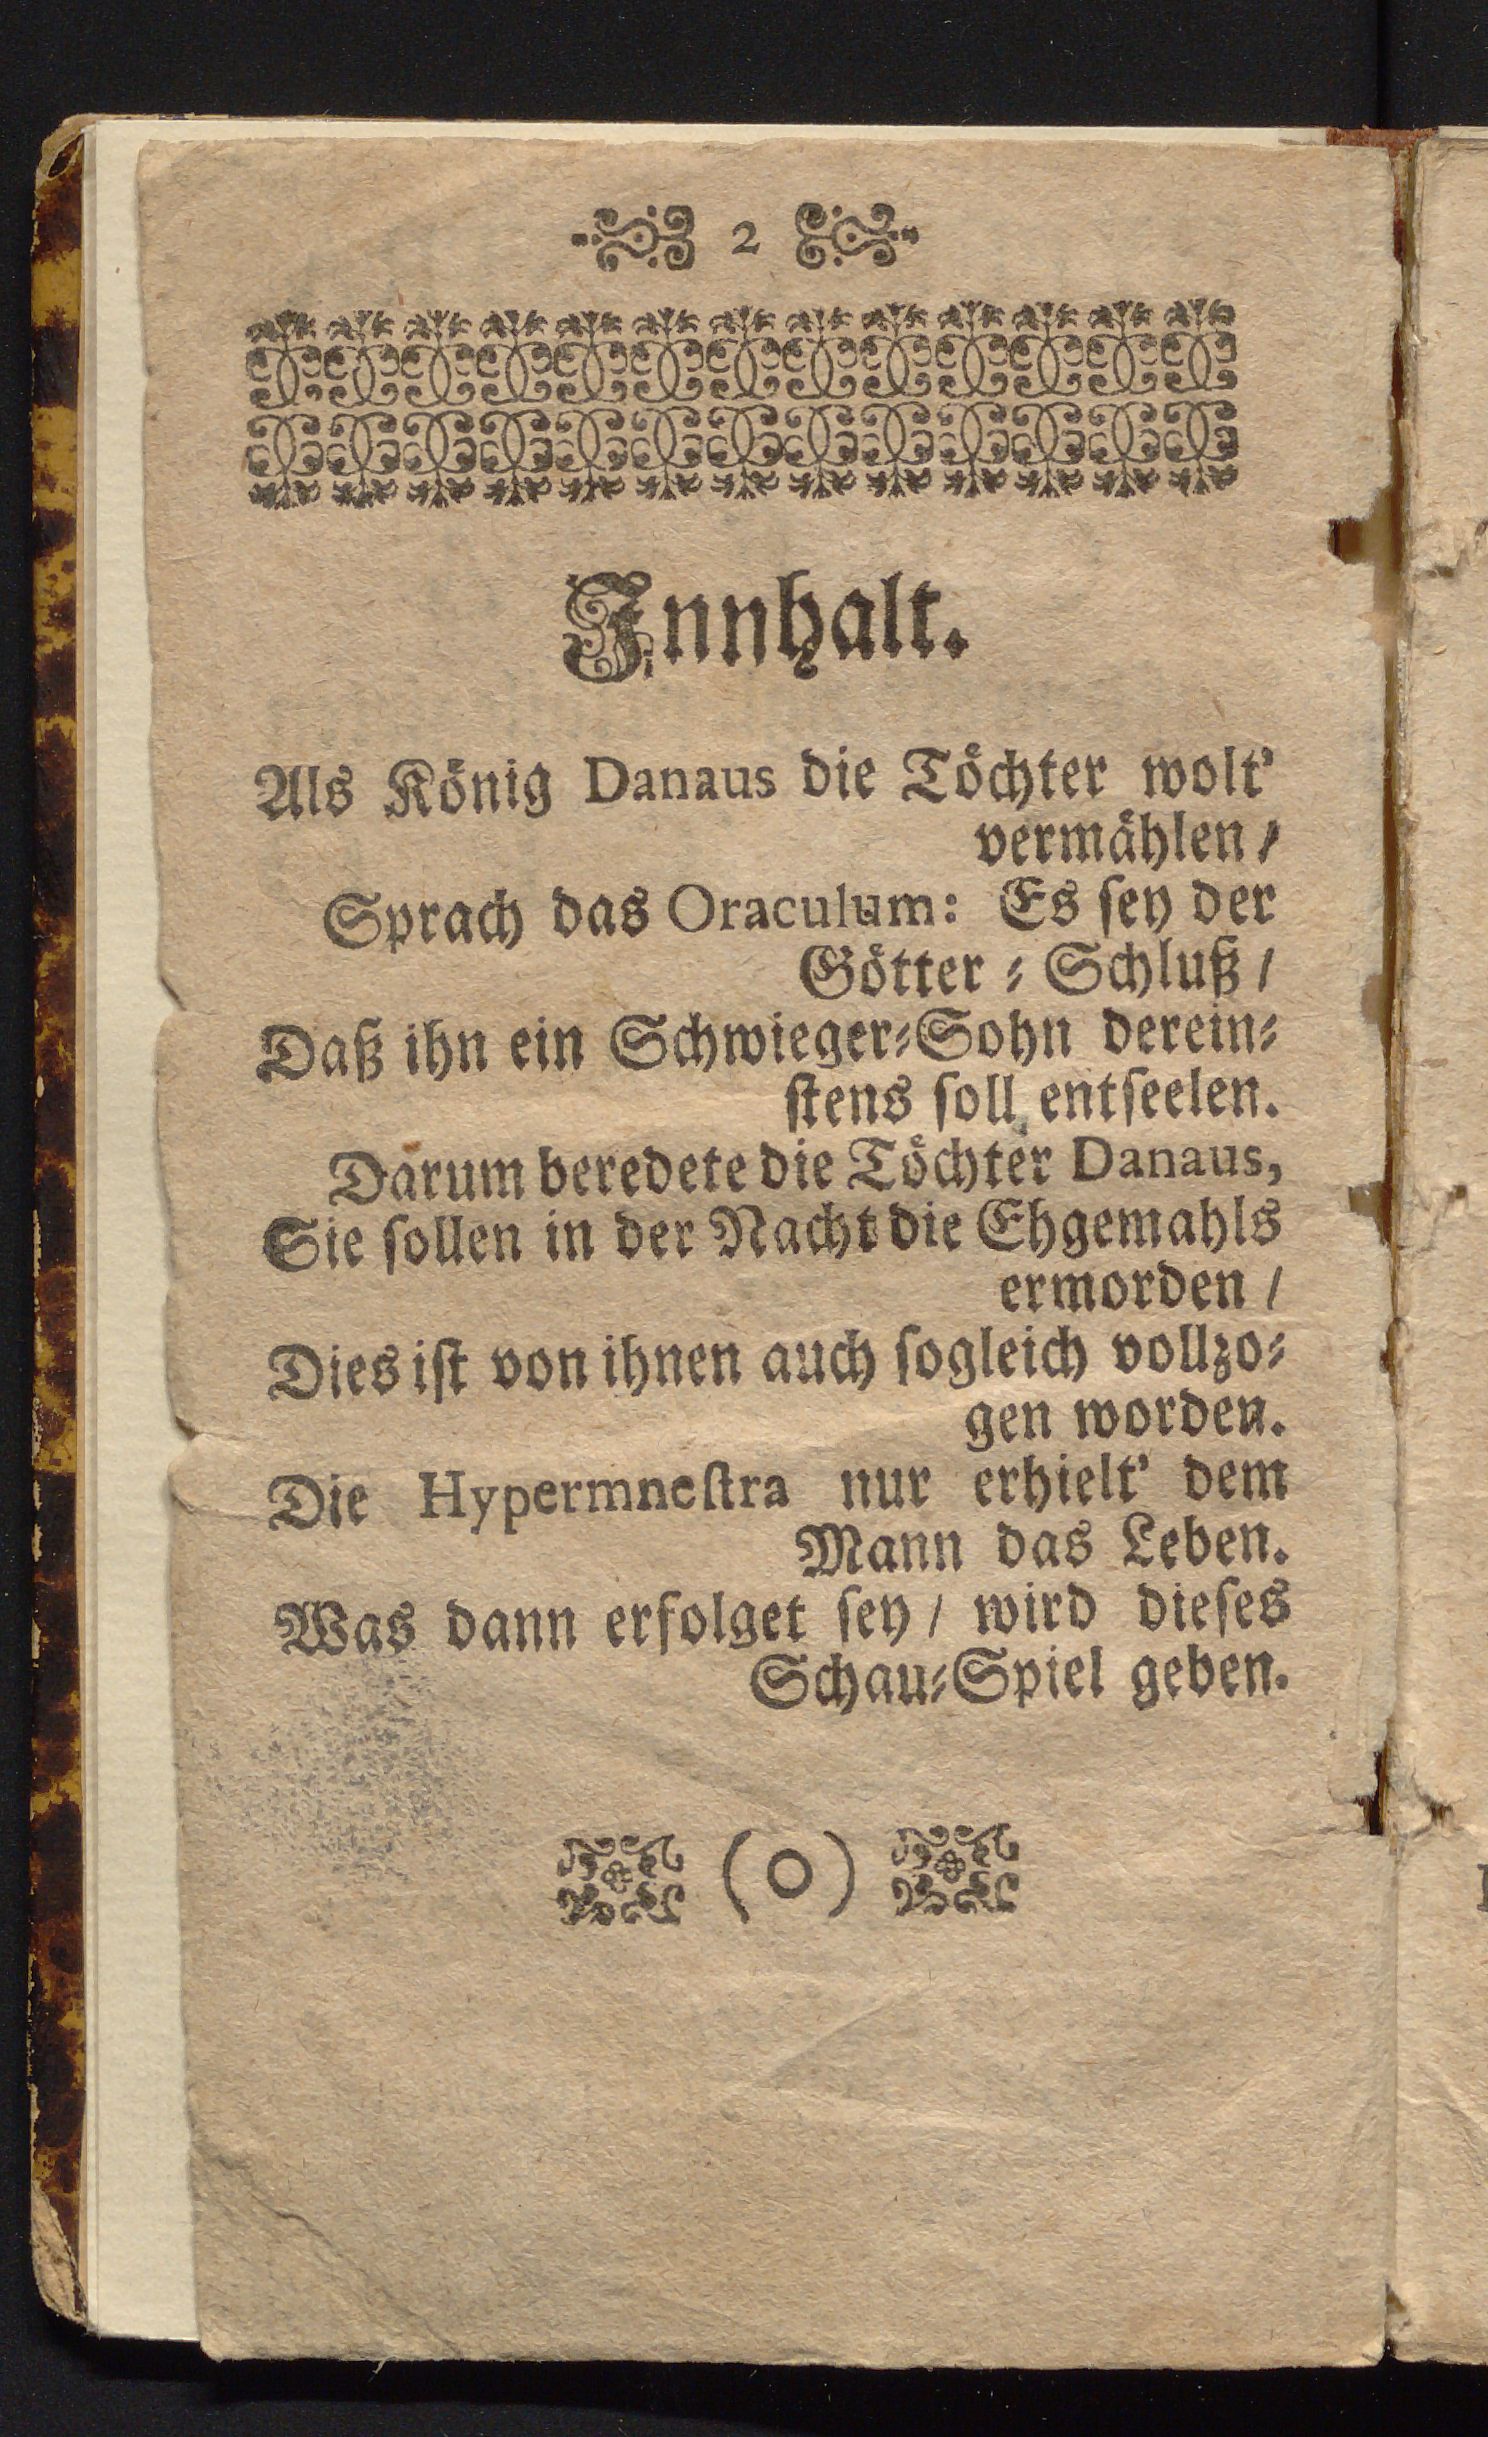 2
Innhalt.
Als König Danaus die Töchter wolt'
vermählen /
Sprach das Oraculum: Es ſey der
Götter = Schluß /
Daß ihn ein Schwieger=Sohn derein=
ſtens ſoll entſeelen.
Darum beredete die Töchter Danaus,
Sie ſollen in der Nacht die Ehgemahls
ermorden /
Dies iſt von ihnen auch ſogleich vollzo=
gen worden.
Die Hypermneſtra nur erhielt' dem
Mann das Leben.
Was dann erfolget ſey / wird dieſes
Schau=Spiel geben.
(O)